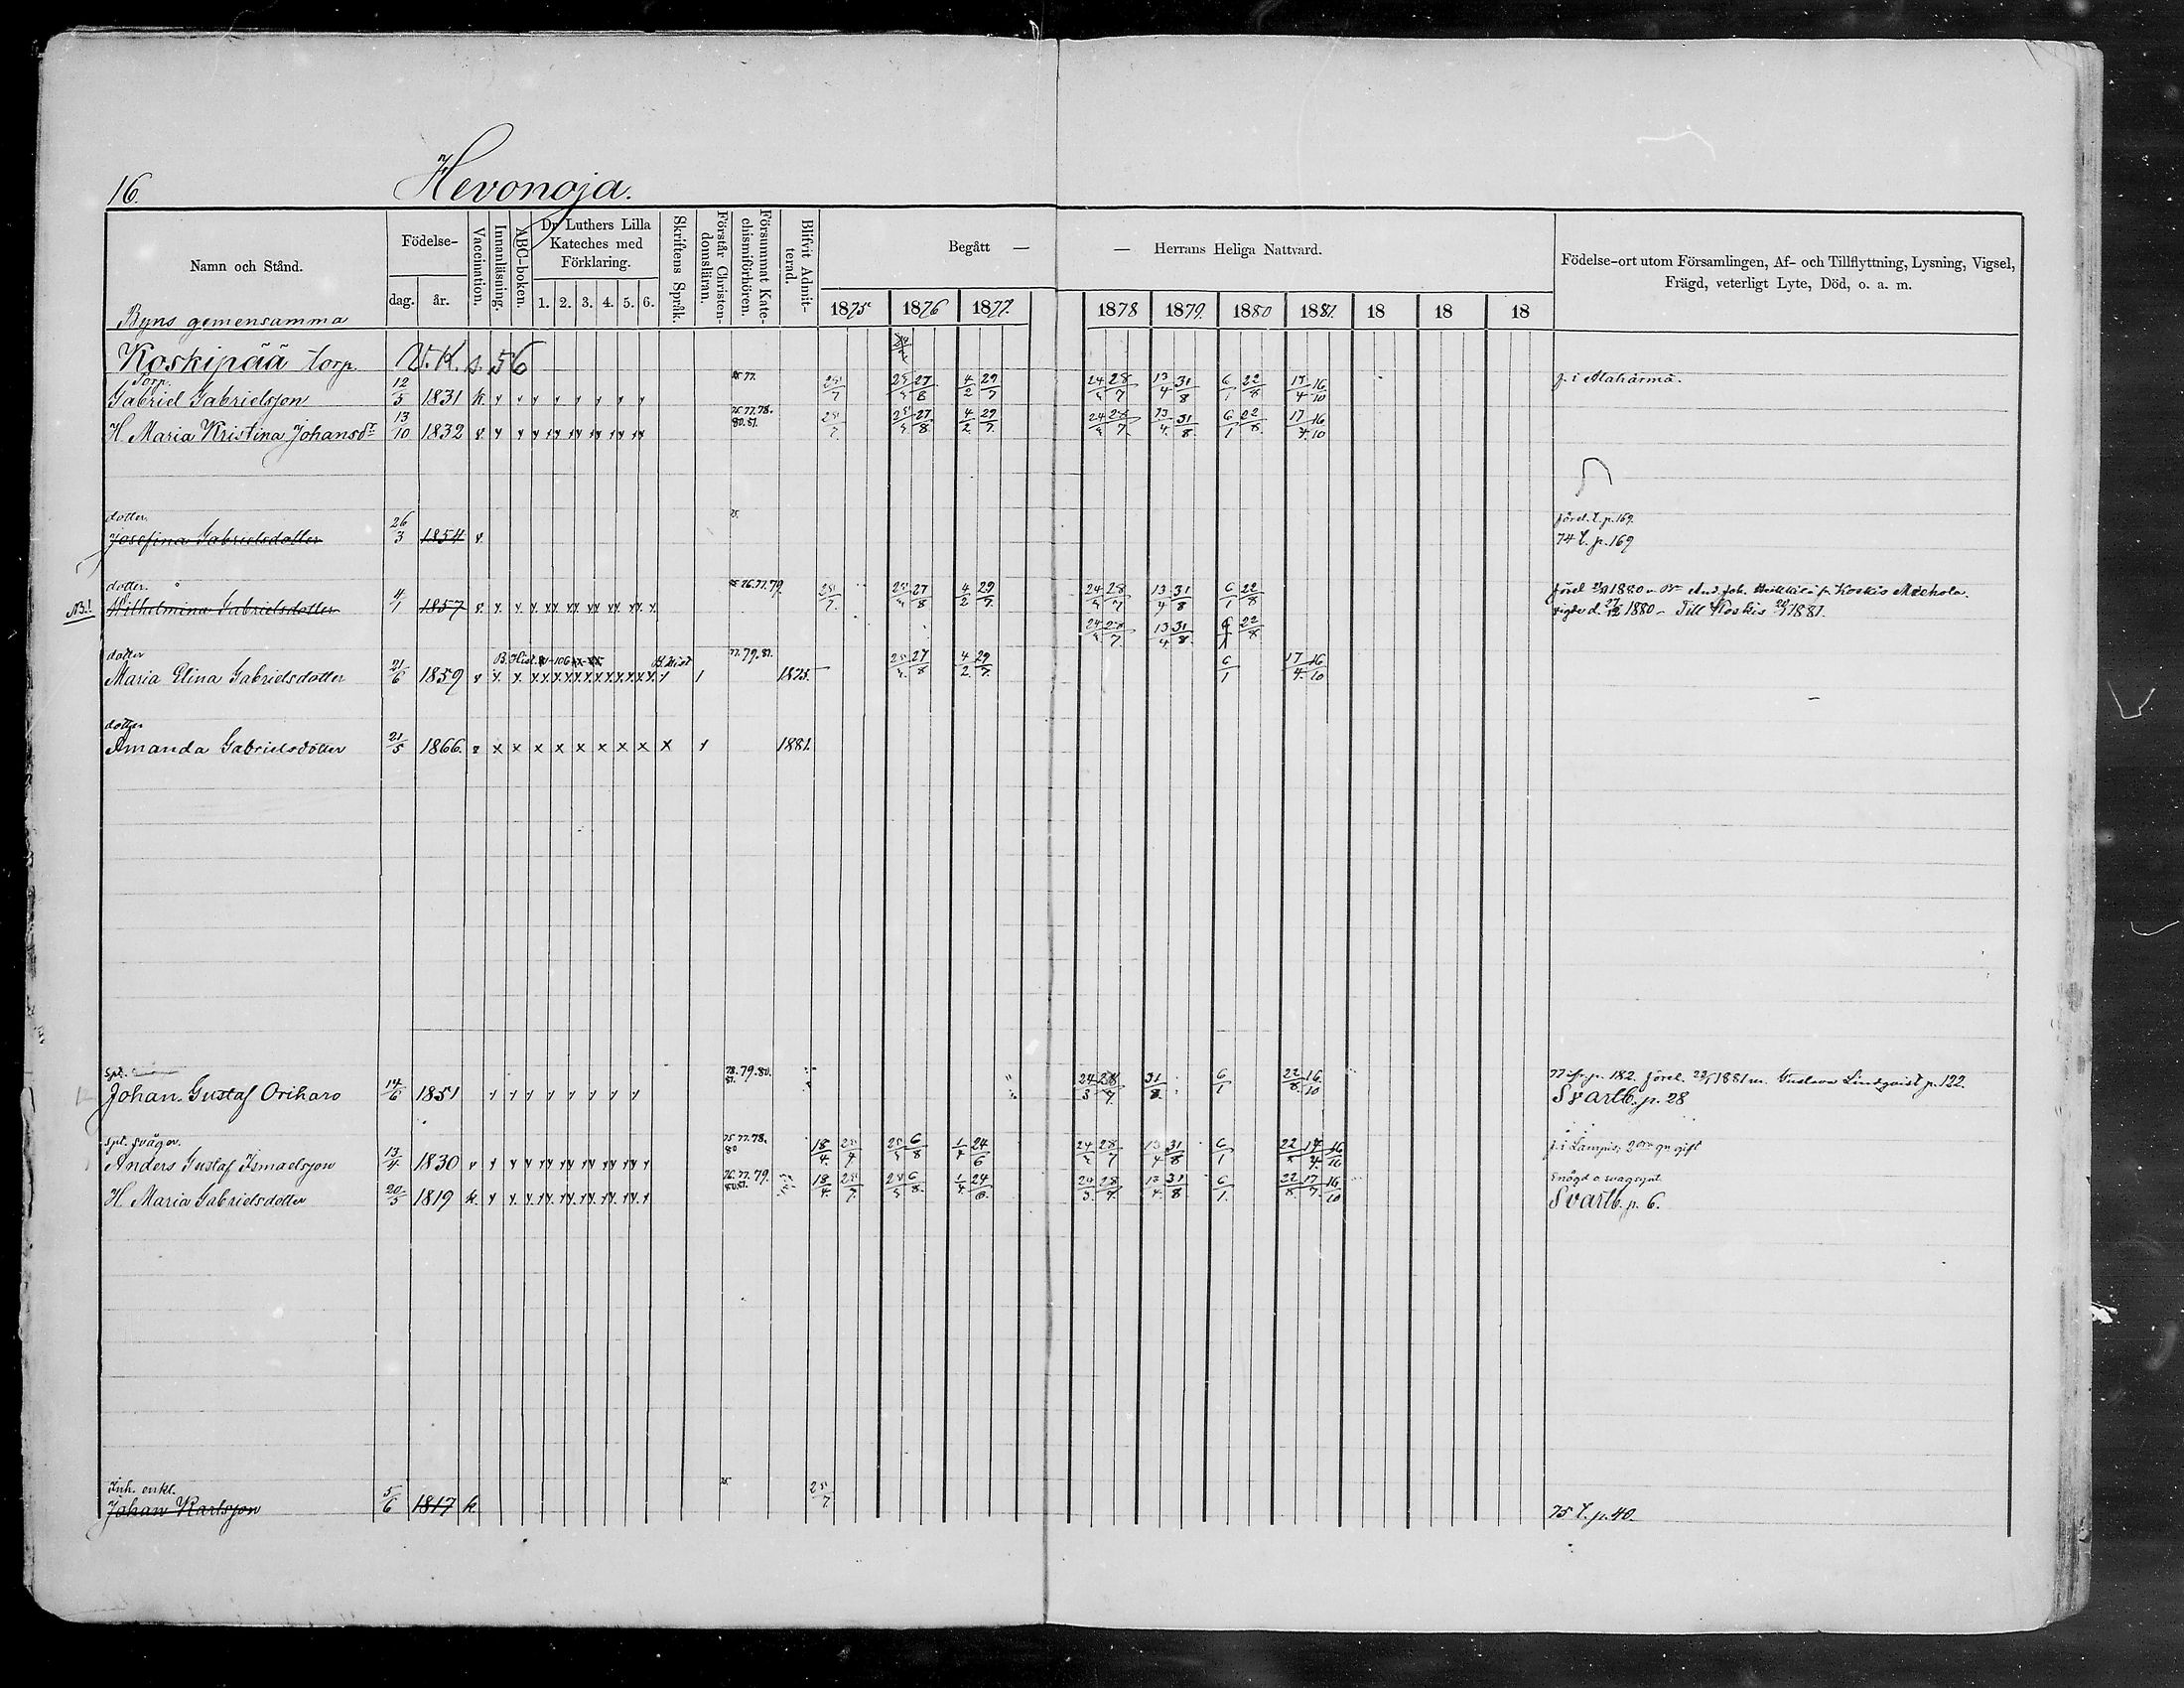 16.
Hevonoja.
Namn och Stånd.
Födelse-
dag.
år.
Vaccination.
Innanläsning.
ABC-boken.
Dr Luthers Lilla
Kateches med
Förklaring.
1. 2. 3. 4. 5. 6.
Skriftens Språk.
Förstår Christen-
domsläran.
Försummat Kate-
chismiförhören.
Blifvit Admit-
terad.
Begått —
— Herrans Heliga Nattvard.
1875 1876 1877. 1878 1879. 1880 1881. 18 18 18
Födelse-ort utom Församlingen, Af- och Tillflyttning, Lysning, Vigsel,
Frägd, veterligt Lyte, Död, o. a. m.
Byns gemensamma
Koskipää torp. V.K. s. 56
Torp.
Gabriel Gabrielsson 12/5 1831 k. 25/7 27/8 4/2 29/7 24/3 28/7 13/4 31/8 6/1 22/8 17/4 16/10 f. i Alahärmä.
H. Maria Kristina Johansdr 13/10 1832 v. 75.77.78. 80.81. 25/7 27/8 4/2 29/7 28/7 13/4 31/8 6/1 22/8 17/4 16/10
dotter.
Josefina Gabrielsdotter 26/3 1854 v. 74 t. p. 169
dotter.
NB.! Wilhelmina Gabrielsdotter 4/1 1857 v. 76.77.79. 25/7 27/8 4/2 29/7 24/3 28/7 13/4 31/8 6/1 22/8
vigde d. 27/12 1880 – Till Koskis 1881.
24/3 28/7 13/4 31/8 6/1 22/8
dotter
Maria Elina Gabrielsdotter 21/6 1859 v B. Hist. 77.79.81. 1875. 27/8 4/2 29/7 6/1 17/4 16/10
dotter
Amanda Gabrielsdotter 21/5 1866. v x x x x x x x x x 1881.
Johan Gustaf Oriharo 14/6 1851 78.79.80. 81. 24/3 28/7 31/8 6/1 22/8 16/10 p. 182. förel. 1881 m. Gustava Lindqvist p. 122.
Svartb. p. 28
spt. svåger.
Anders Gustaf Ismaelsson 13/4 1830 v 75.77.78. 80 18/4 25/7 6/8 1/4 24/6 24/3 28/7 13/4 31/8 6/1 22/8 17/4 16/10 f. i Lampis; 2dra gn gift
H. Maria Gabrielsdotter 20/5 1819 k. 76.77.79. 80.81. 18/4 25/7 6/8 1/4 24/6 24/3 28/7 13/4 31/8 6/1 22/8 17/4 16/10
Svartb. p. 6.
Inh. enkl.
Johan Karlsson 5/6 1817 k. 75 25/7 75 t. p. 40.